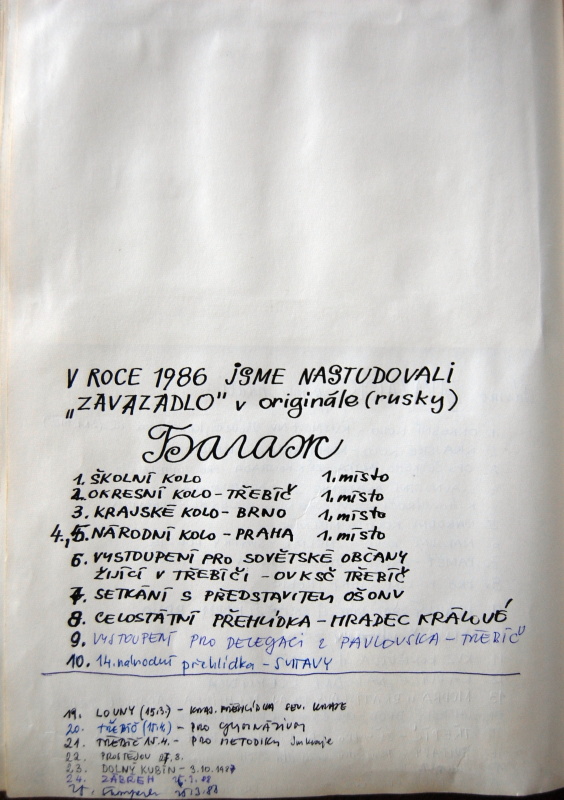 V ROCE 1986 JSME NASTUDOVALI
„ZAVAZADLO" v originále (rusky)
Багаж
1. ŠKOLNÍ KOLO 1. místo
2. OKRESNÍ KOLO - TŘEBÍČ 1. místo
3. KRAJSKÉ KOLO - BRNO 1. místo
4.,5. NÁRODNÍ KOLO - PRAHA 1. místo
6. VYSTOUPENÍ PRO SOVĚTSKÉ OBČANY
ŽIJÍCÍ V TŘEBÍČI - OV KSČ TŘEBÍČ
7. SETKÁNÍ S PŘEDSTAVITELI OŠONV
8. CELOSTÁTNÍ PŘEHLÍDKA - HRADEC KRÁLOVÉ
9. VYSTOUPENÍ PRO DELEGACI Z PAVLOVSKA - TŘEBÍČ
10. 14. národní přehlídka - SVITAVY
19. LOUNY (15.3.) - KRAJ. PŘEHLÍDKA SEV. KRAJE
20. TŘEBÍČ (15.4.) - PRO GYMNÁZIUM
21. TŘEBÍČ 15.4. - PRO METODIKY
22. PROSTĚJOV
23. DOLNÝ KUBÍN - 3.10.1987
24. ZÁBŘEH